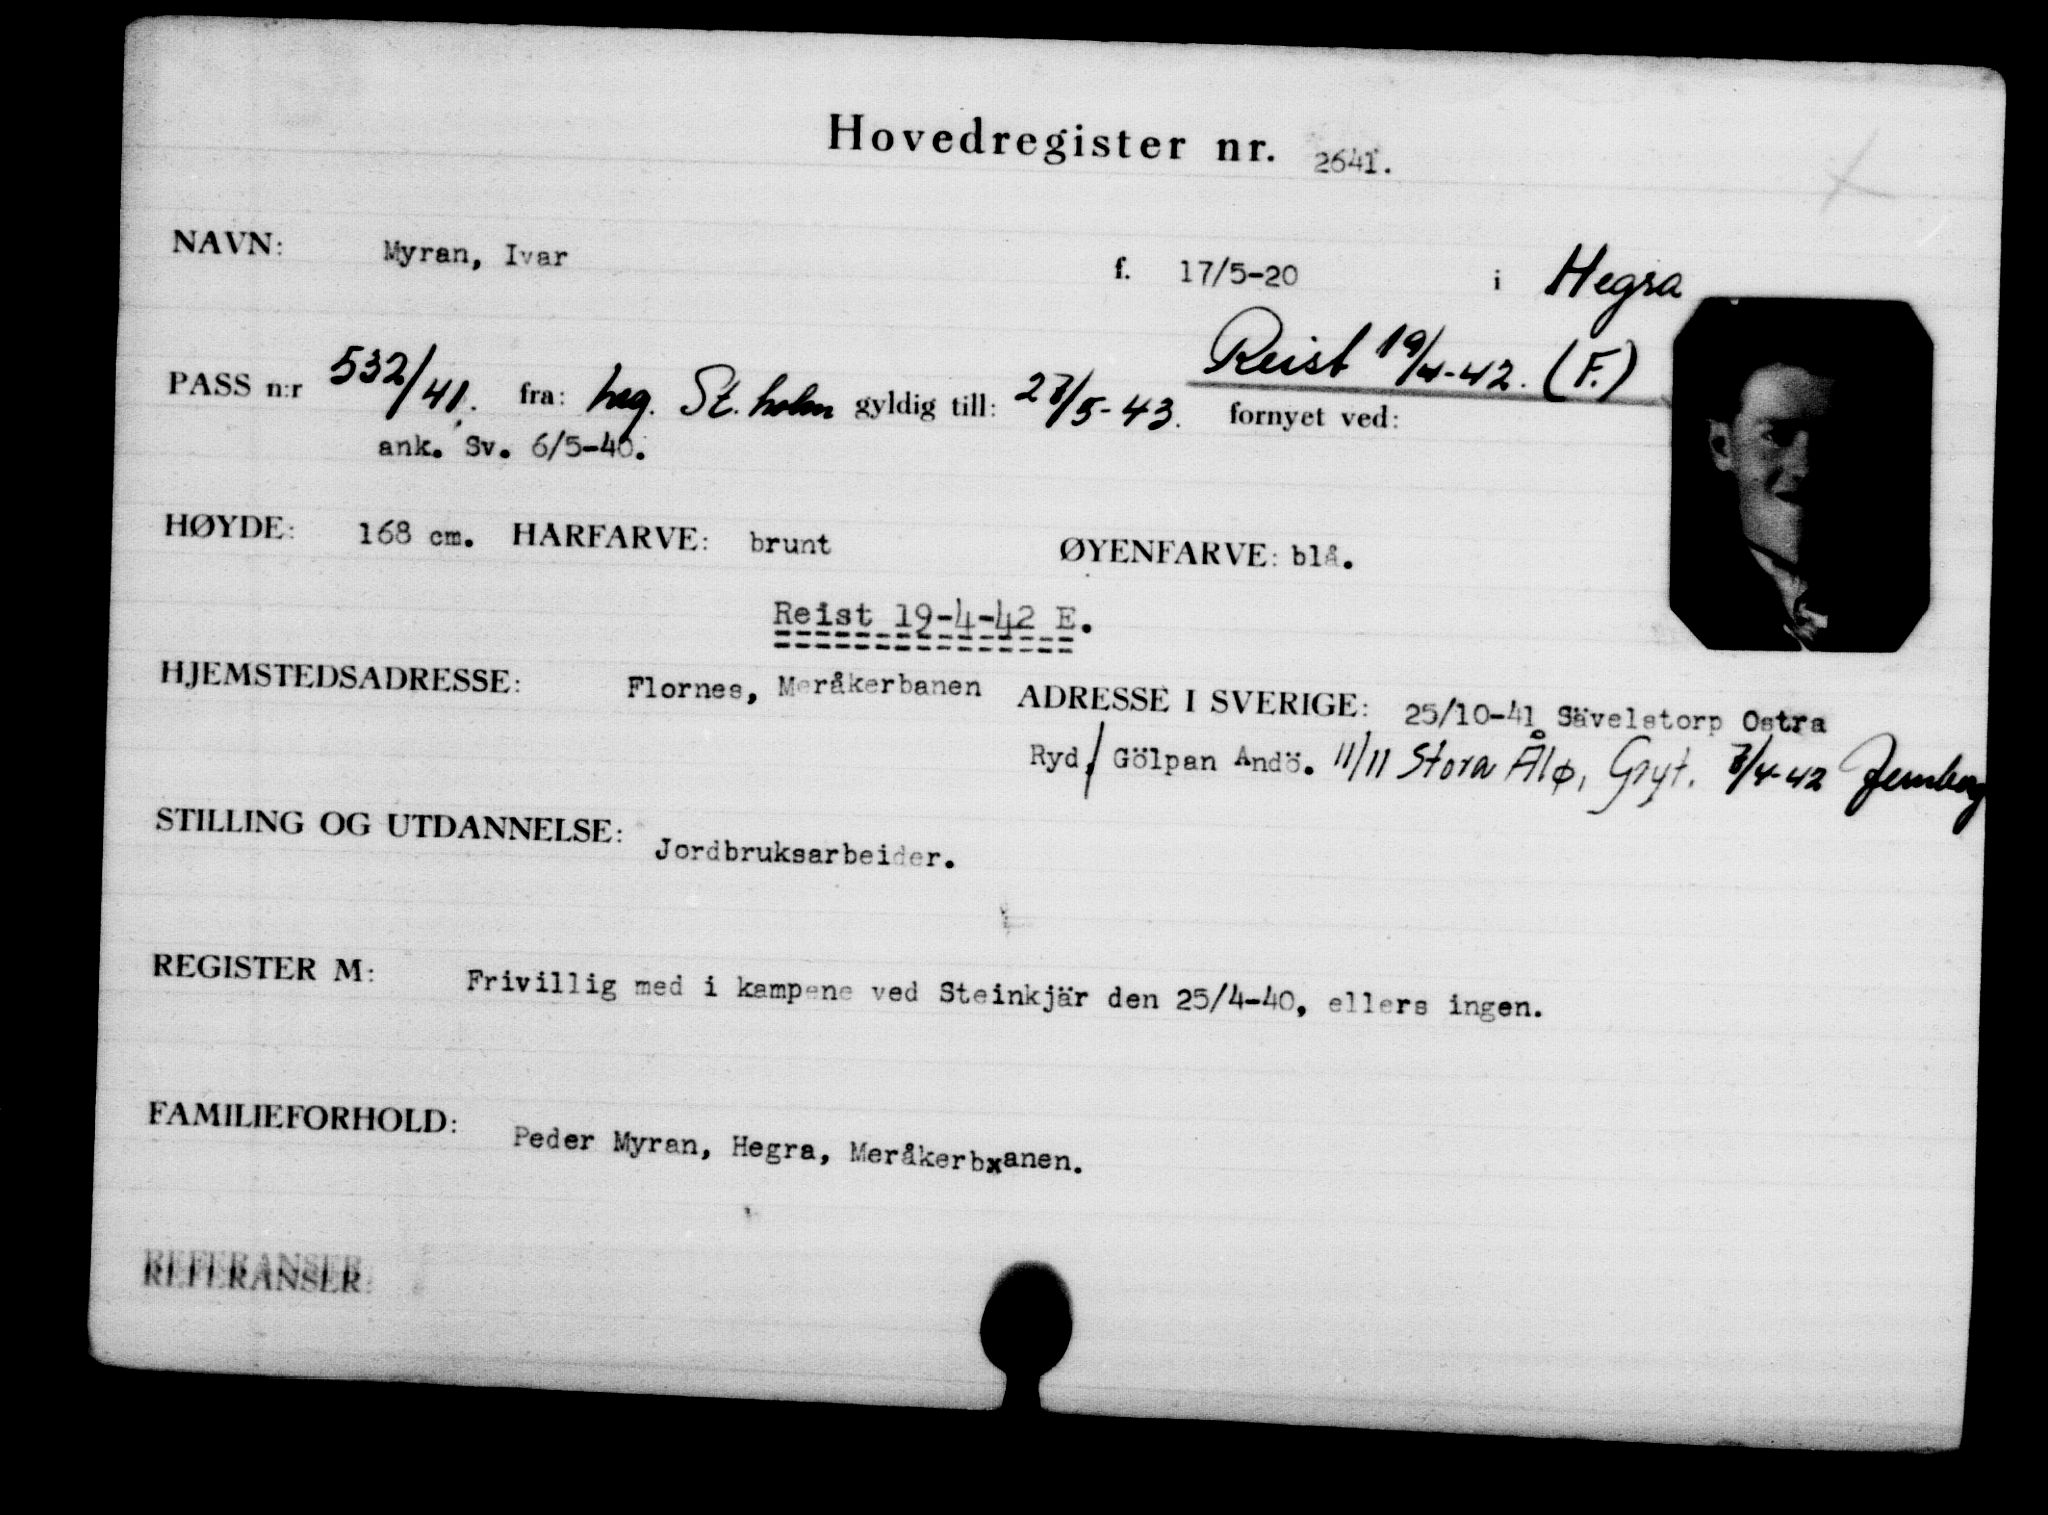 Hovedregister nr. 2641.
NAVN: Myran, Ivar f. 17/5-20 i Hegsa
Reist 19/4-42. (F.)
PASS n:r 532/41. fra: Leg. St. holm gyldig till: 27/5-43. fornyet ved:
ank. Sv. 6/5-40.
HØYDE: 168 cm. HARFARVE: brunt ØYENFARVE: blå.
Reist 19-4-42 E.
HJEMSTEDSADRESSE: Flornes, Meråkerbanen ADRESSE I SVERIGE: 25/10-41 Sävelstorp Ostra
Ryd, Gölpan Andö. 11/11 Stora Ålø, Gryt. 7/4-42
STILLING OG UTDANNELSE: Jordbruksarbeider.
REGISTER M: Frivillig med i kampene ved Steinkjär den 25/4-40, ellers ingen.
FAMILIEFORHOLD: Peder Myran, Hegra, Meråkerbxanen.
REFERANSER: